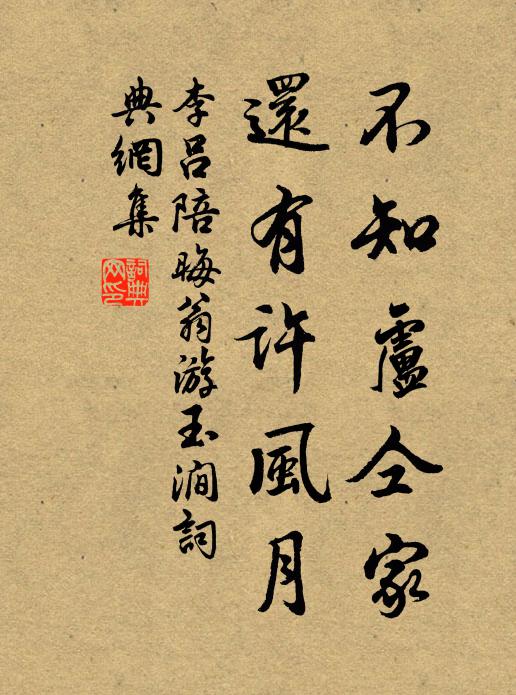 不知盧仝家
還有許風月
李呂陪晦翁游玉澗詞
典網集
詞典
網印